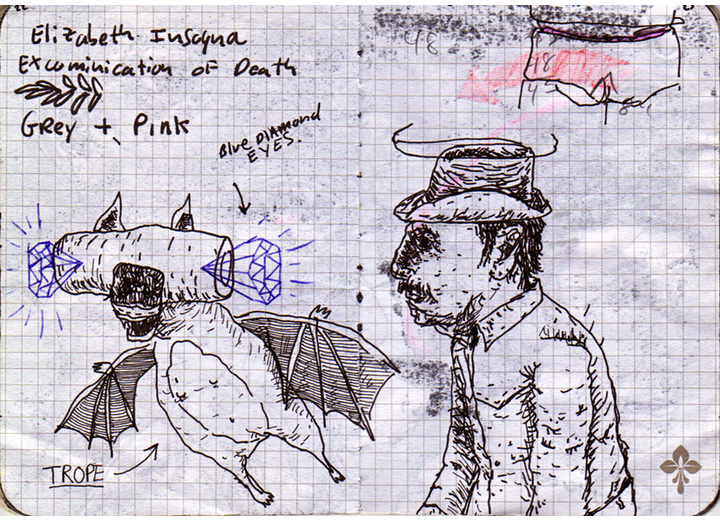 22
Elizabeth Insagna
Excominication of Death
Grey + Pink
Blue Diamond
EYES.
TROPE
48
48